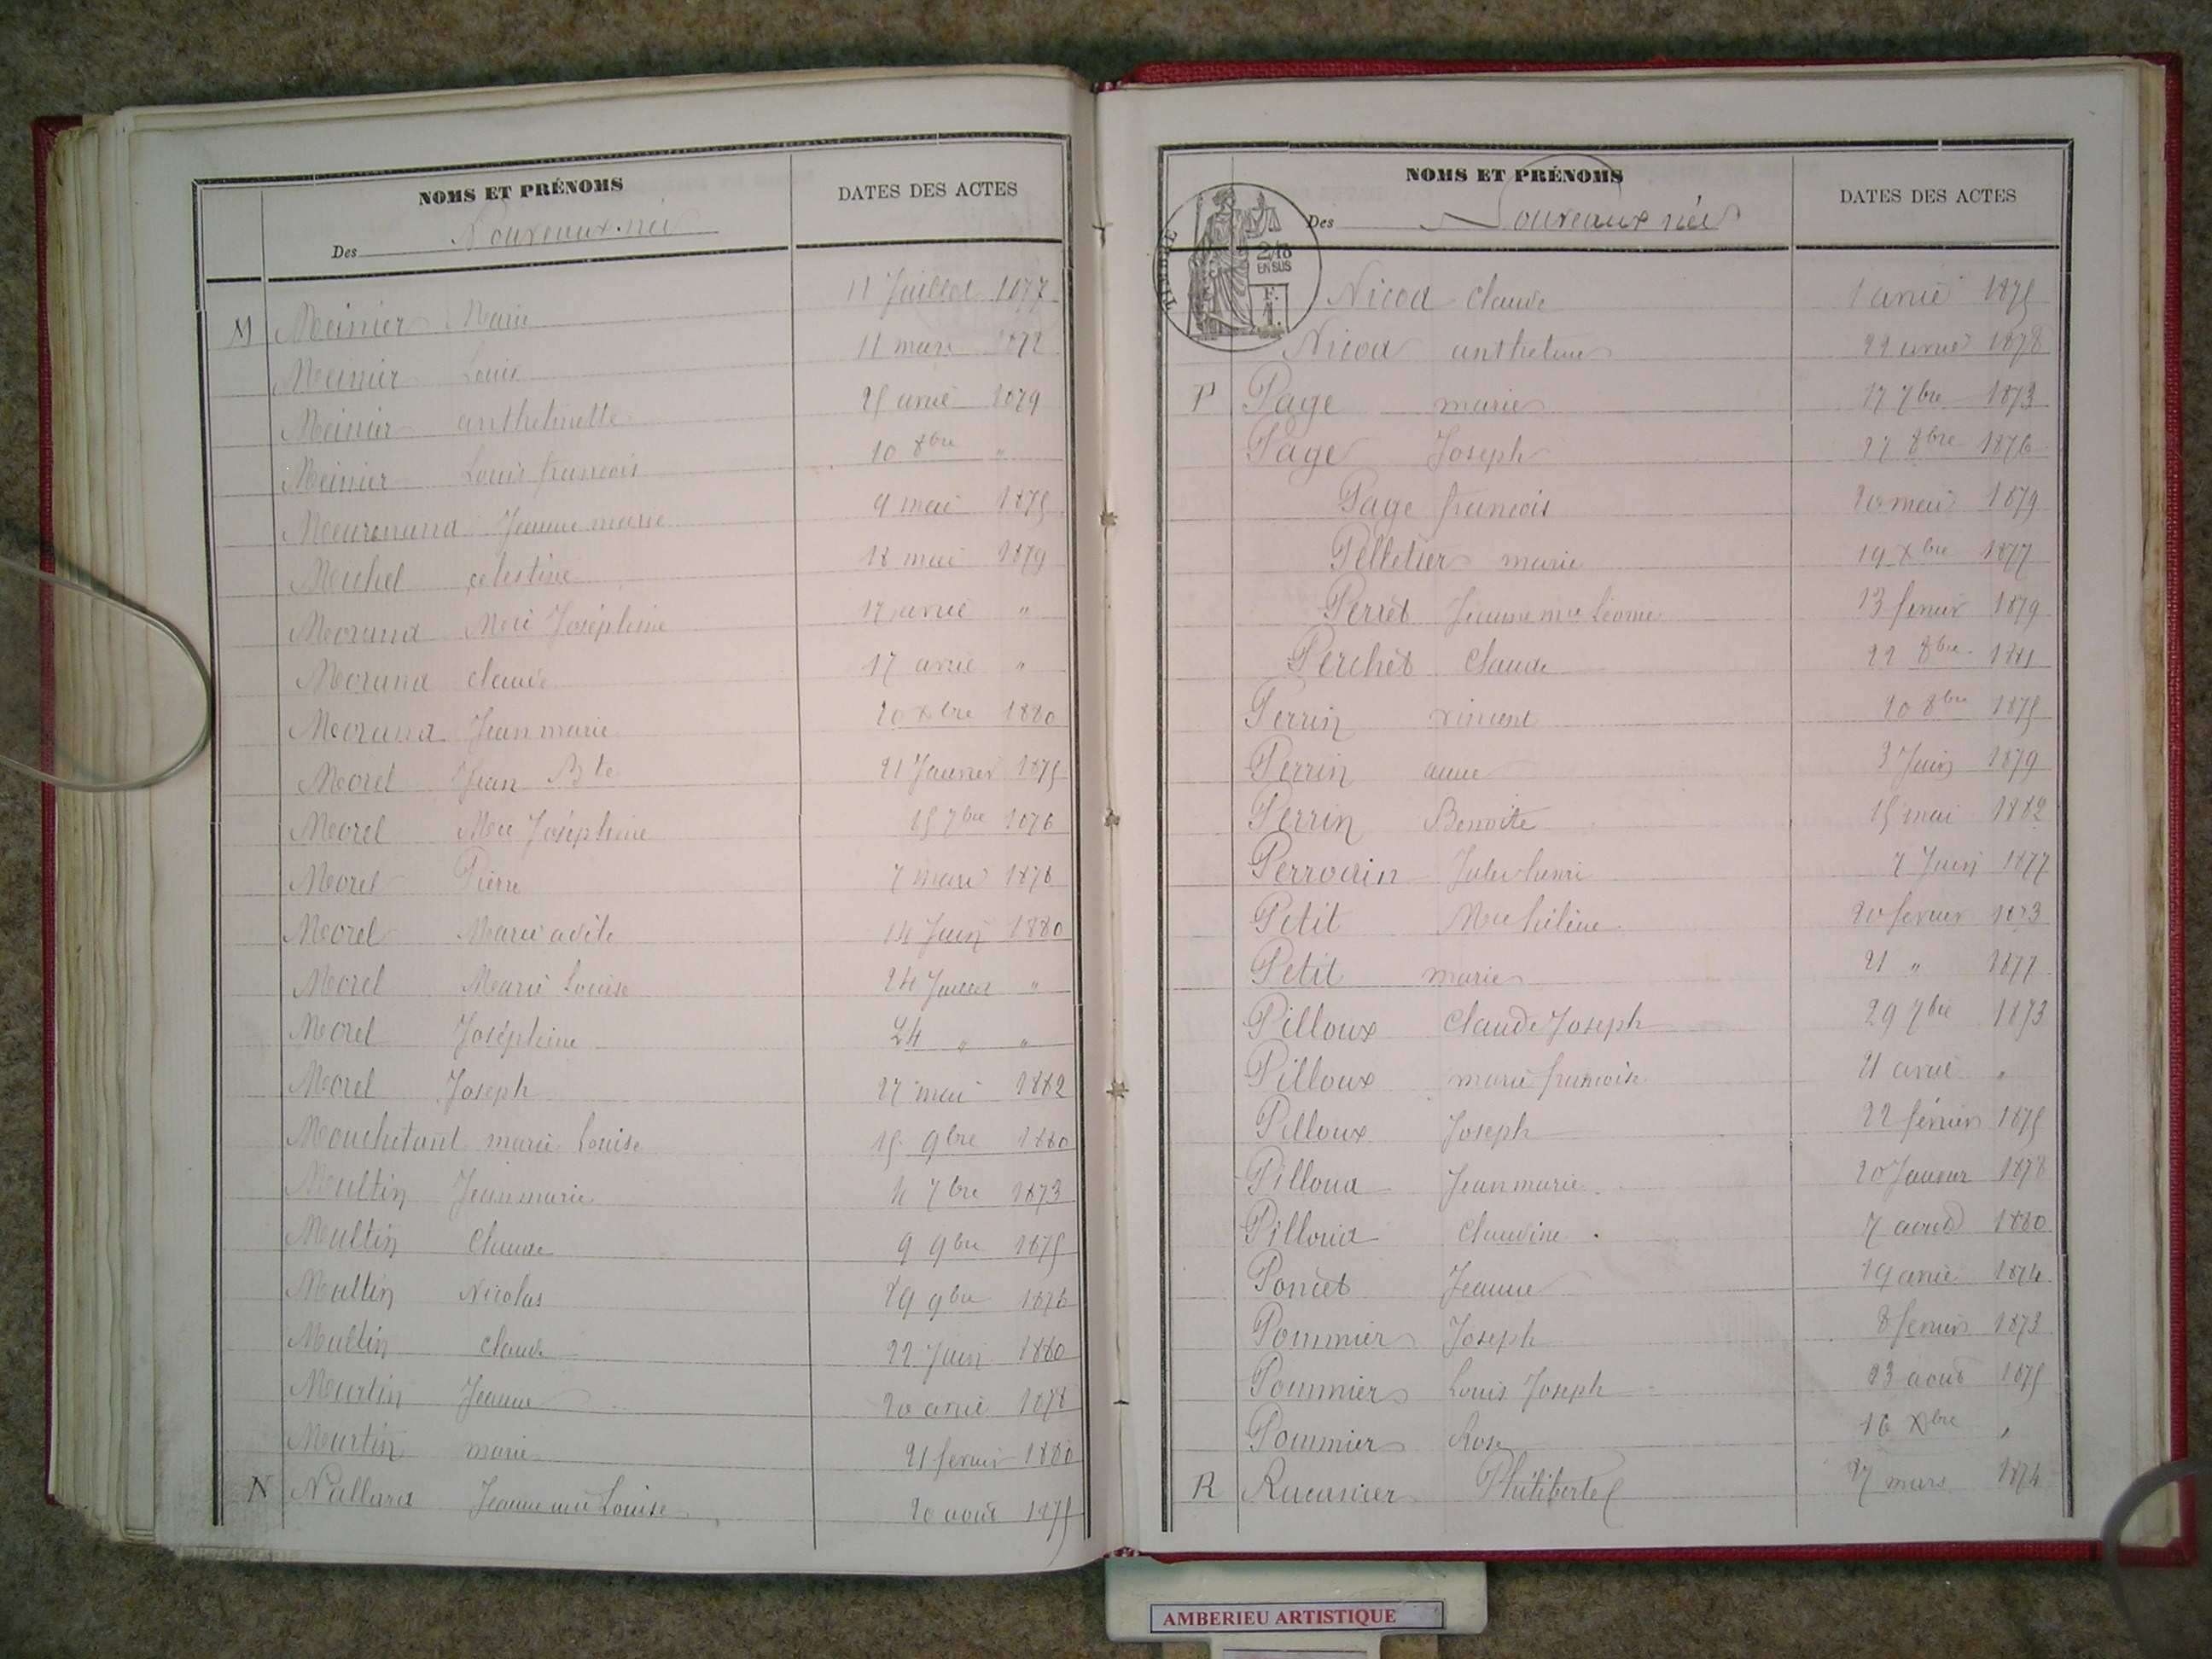 NOMS ET PRÉNOMS
DATES DES ACTES
Des Nouveaux nés
M Meinier Marie 11 Juillet 1877
Meinier Louis 11 mars 1878
Meinier anthelmette 25 avril 1879
Meinier Louis francois 10 8bre "
Jeanne marie 9 mai 1875
Michel celestine 18 mai 1879
Morand Mie Joséphine 17 avril "
Morand claude 17 avril "
Morand Jean marie 20 xbre 1880
Morel Jean Bte 21 Janvier 1875
Morel Mie Joséphine 15 7bre 1876
Morel Pierre 7 mars 1878
Morel Marie adèle 14 Juin 1880
Morel Marie Louise 24 Juillet "
Morel Joséphine 24 " "
Morel Joseph 27 mai 1882
Mouchetant marie Louise 15 9bre 1880
Multin Jean marie 4 7bre 1873
Multin Claude 9 9bre 1875
Multin Nicolas 29 9bre 1876
Multin claude 22 Juin 1880
Murtin Jeanne 20 avril 1878
Murtin marie 21 fevrier 1880
N Nallard Jeanne mie Louise 20 août 1875
NOMS ET PRÉNOMS
DATES DES ACTES
Des Nouveaux nés
TIMBRE
2/10
EN SUS
Nicod Claude 1 avril 1875
Nicod anthelme 22 avril 1878
P Page marie 17 7bre 1873
Page Joseph 27 8bre 1876
Page francois 20 mai 1879
Pelletier marie 19 xbre 1877
Perret Jeanne mie Léonie 13 fevrier 1879
Perchet Claude 22 8bre 1881
Perrin vincent 20 8bre 1875
Perrin anne 3 Juin 1879
Perrin Benoite 15 mai 1882
Perrodin Jules henri 7 Juin 1877
Petit Mie hélène 20 fevrier 1873
Petit marie 21 " 1877
Pilloux Claude Joseph 29 7bre 1873
Pilloux marie francoise 21 avril "
Pilloux Joseph 22 février 1875
Pilloud Jean marie 20 Janvier 1878
Pilloud Claudine 7 aout 1880
Poncet Jeanne 19 avril 1874
Pommier Joseph 8 fevrier 1873
Pommier Louis Joseph 23 aout 1875
Pommier Rose 16 Xbre "
R Philiberte 27 mars 1874
AMBERIEU ARTISTIQUE